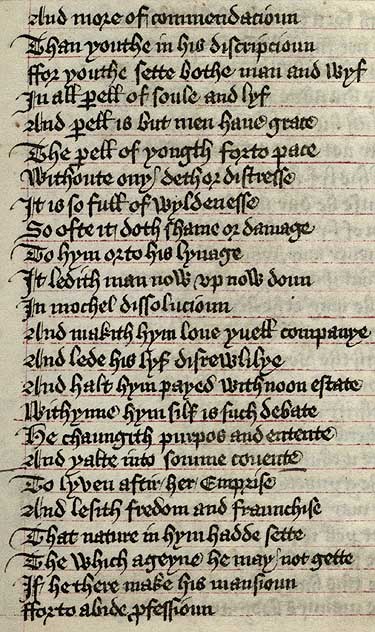 And more of commendacioun
Than youthe in his discripcioun
ffor youthe sette bothe man and wyf
In all pell of soule and lyf
And pell is but men haue grace
The pell of yongth forto pace
Withoute ony dethor distresse
It is so full of wyldenesse
So ofte it doth shame or damage
To hym orto his lynage
It ledith man now vp now doun
In mochel dissolucioun
And makith hym loue yuell companye
And lede his lyf disrewlilye
And halt hym payed with noon estate
Withynne hym silf is such debate
He chaungith purpos and entente
And yalte into somme couente
To lyven aftir her Emprise
And lesith fredom and fraunchise
That nature in hym hadde sette
The which ageyne he may not gette
If he there make his mansioun
fforto abide pfessioun